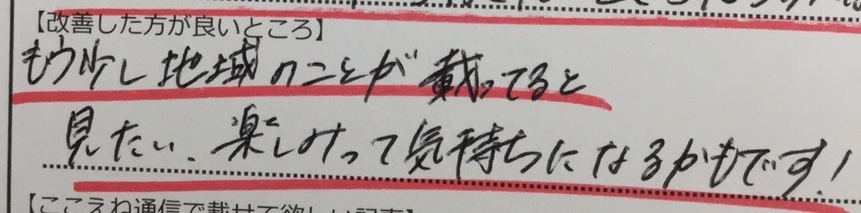 【改善した方が良いところ】
もう少し地域のことが載ってると
見たい、楽しみって気持ちになるかもです!
【ここえね通信で載せて欲しい記事】